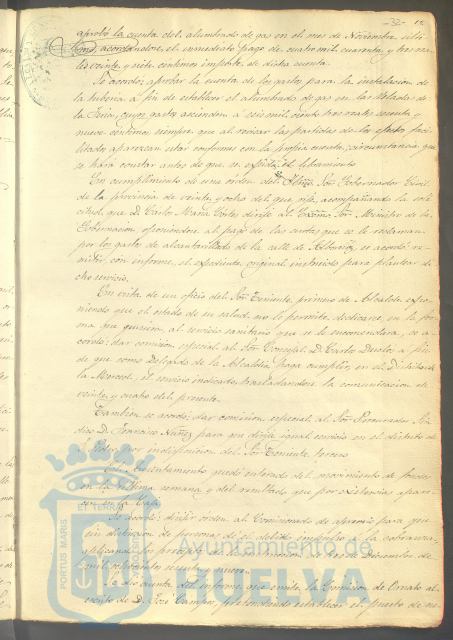 -32-
aprobó la cuenta del alumbrado de gas en el mes de Noviembre últi-
mo, acordandose el inmediato pago de cuatro mil cuarenta y tres rea-
les veinte y siete centimos importe de dicha cuenta.
Se acordó: aprobar la cuenta de los gastos para la instalacion de
la tuberia a fin de establecer el alumbrado de gas en las Veladas de
la Feria, cuyos gastos ascienden a seis mil ciento tres reales sesenta y
nueve centimos siempre que al revisar las partidas de los efectos faci-
litados aparezcan estar conformes con la propia cuenta, circunstancia que
se hará constar antes de que se expida el libramiento
En cumplimiento de una órden del Sor Gobernador Civil
de la provincia de veinte y ocho del que rije, acompañando la soli-
citud que D. Carlos Maria Cortes dirije al Excmo Sor Ministro de la
Gobernacion oponiéndose al pago de las cuotas que se le reclaman
por los gastos de alcantarillado de la calle de se acordó re-
mitir con informe, el espediente original instruido para plantear di-
cho servicio.
En vista de un oficio del Sor Teniente primero de Alcalde espo-
niendo que el estado de su salud no le permite dedicarse en la for-
ma que quisiera al servicio sanitario que se le encomendara, se a-
cordó: dar comision especial al Sor Concejal D. Carlos a fin
de que como Delegado de la Alcaldia haga cumplir en el Distrito de
la Merced, el servicio indicado, trasladandose la comunicacion de
veinte y cuatro del presente.
Tambien se acordó: dar comision especial al Sor Procurador Sin-
dico D. Francisco Nuñez para que dirija igual servicio en el distrito de
por indisposicion del Sor Teniente tercero
El Ayuntamiento quedó enterado del movimiento de fondos
en la última semana y del resultado que por existencias apare-
ce en la Caja
Se acordó: dirijir órden al Comisionado de apremio para que
sin distincion de personas dé el debido impulso a la cobranza
aplicando los de tres de Diciembre de
mil ochocientos sesenta y nueve.
Se dió cuenta del informe que emite la Comision de Ornato al
escrito de D. José Campos pretendiendo establecer el puesto de
PORTUS MARIS
ET TERRÆ
Ayuntamiento de
HUELVA